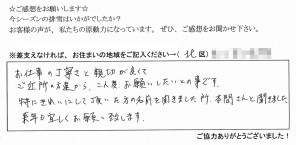 ☆ご感想をお願いします☆
今シーズンの排雪はいかがでしたか？
お客様の声が、私たちの原動力になっています。ぜひ、ご感想をお聞かせ下さい。
※差支えなければ、お住まいの地域をご記入ください→（北区）
お仕事の丁寧さと親切が良くて
ご近所の方達から、二人房お願いしたいとの事です。
特にきれいにして頂いた方の名前を聞きました所、本間さんと聞きました。
来年も宜しくお願い致します。
ご協力ありがとうございました！